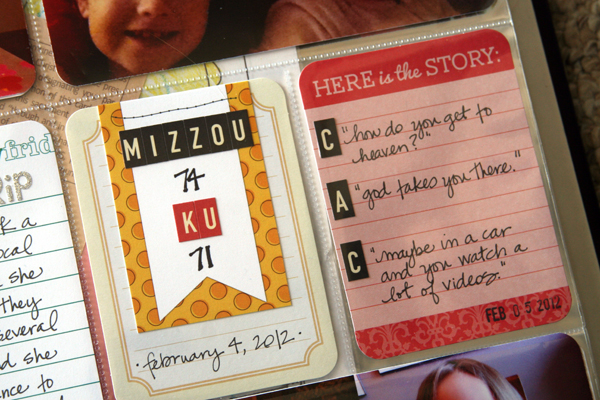 frid
rip
k a
ocal
s she
they
several
d she
ence to
MIZZOU
74
KU
71
·february 4, 2012·
HERE is the STORY:
C "how do you get to
heaven?"
A "god takes you there."
C "maybe in a car
and you watch a
lot of videos."
FEB 05 2012